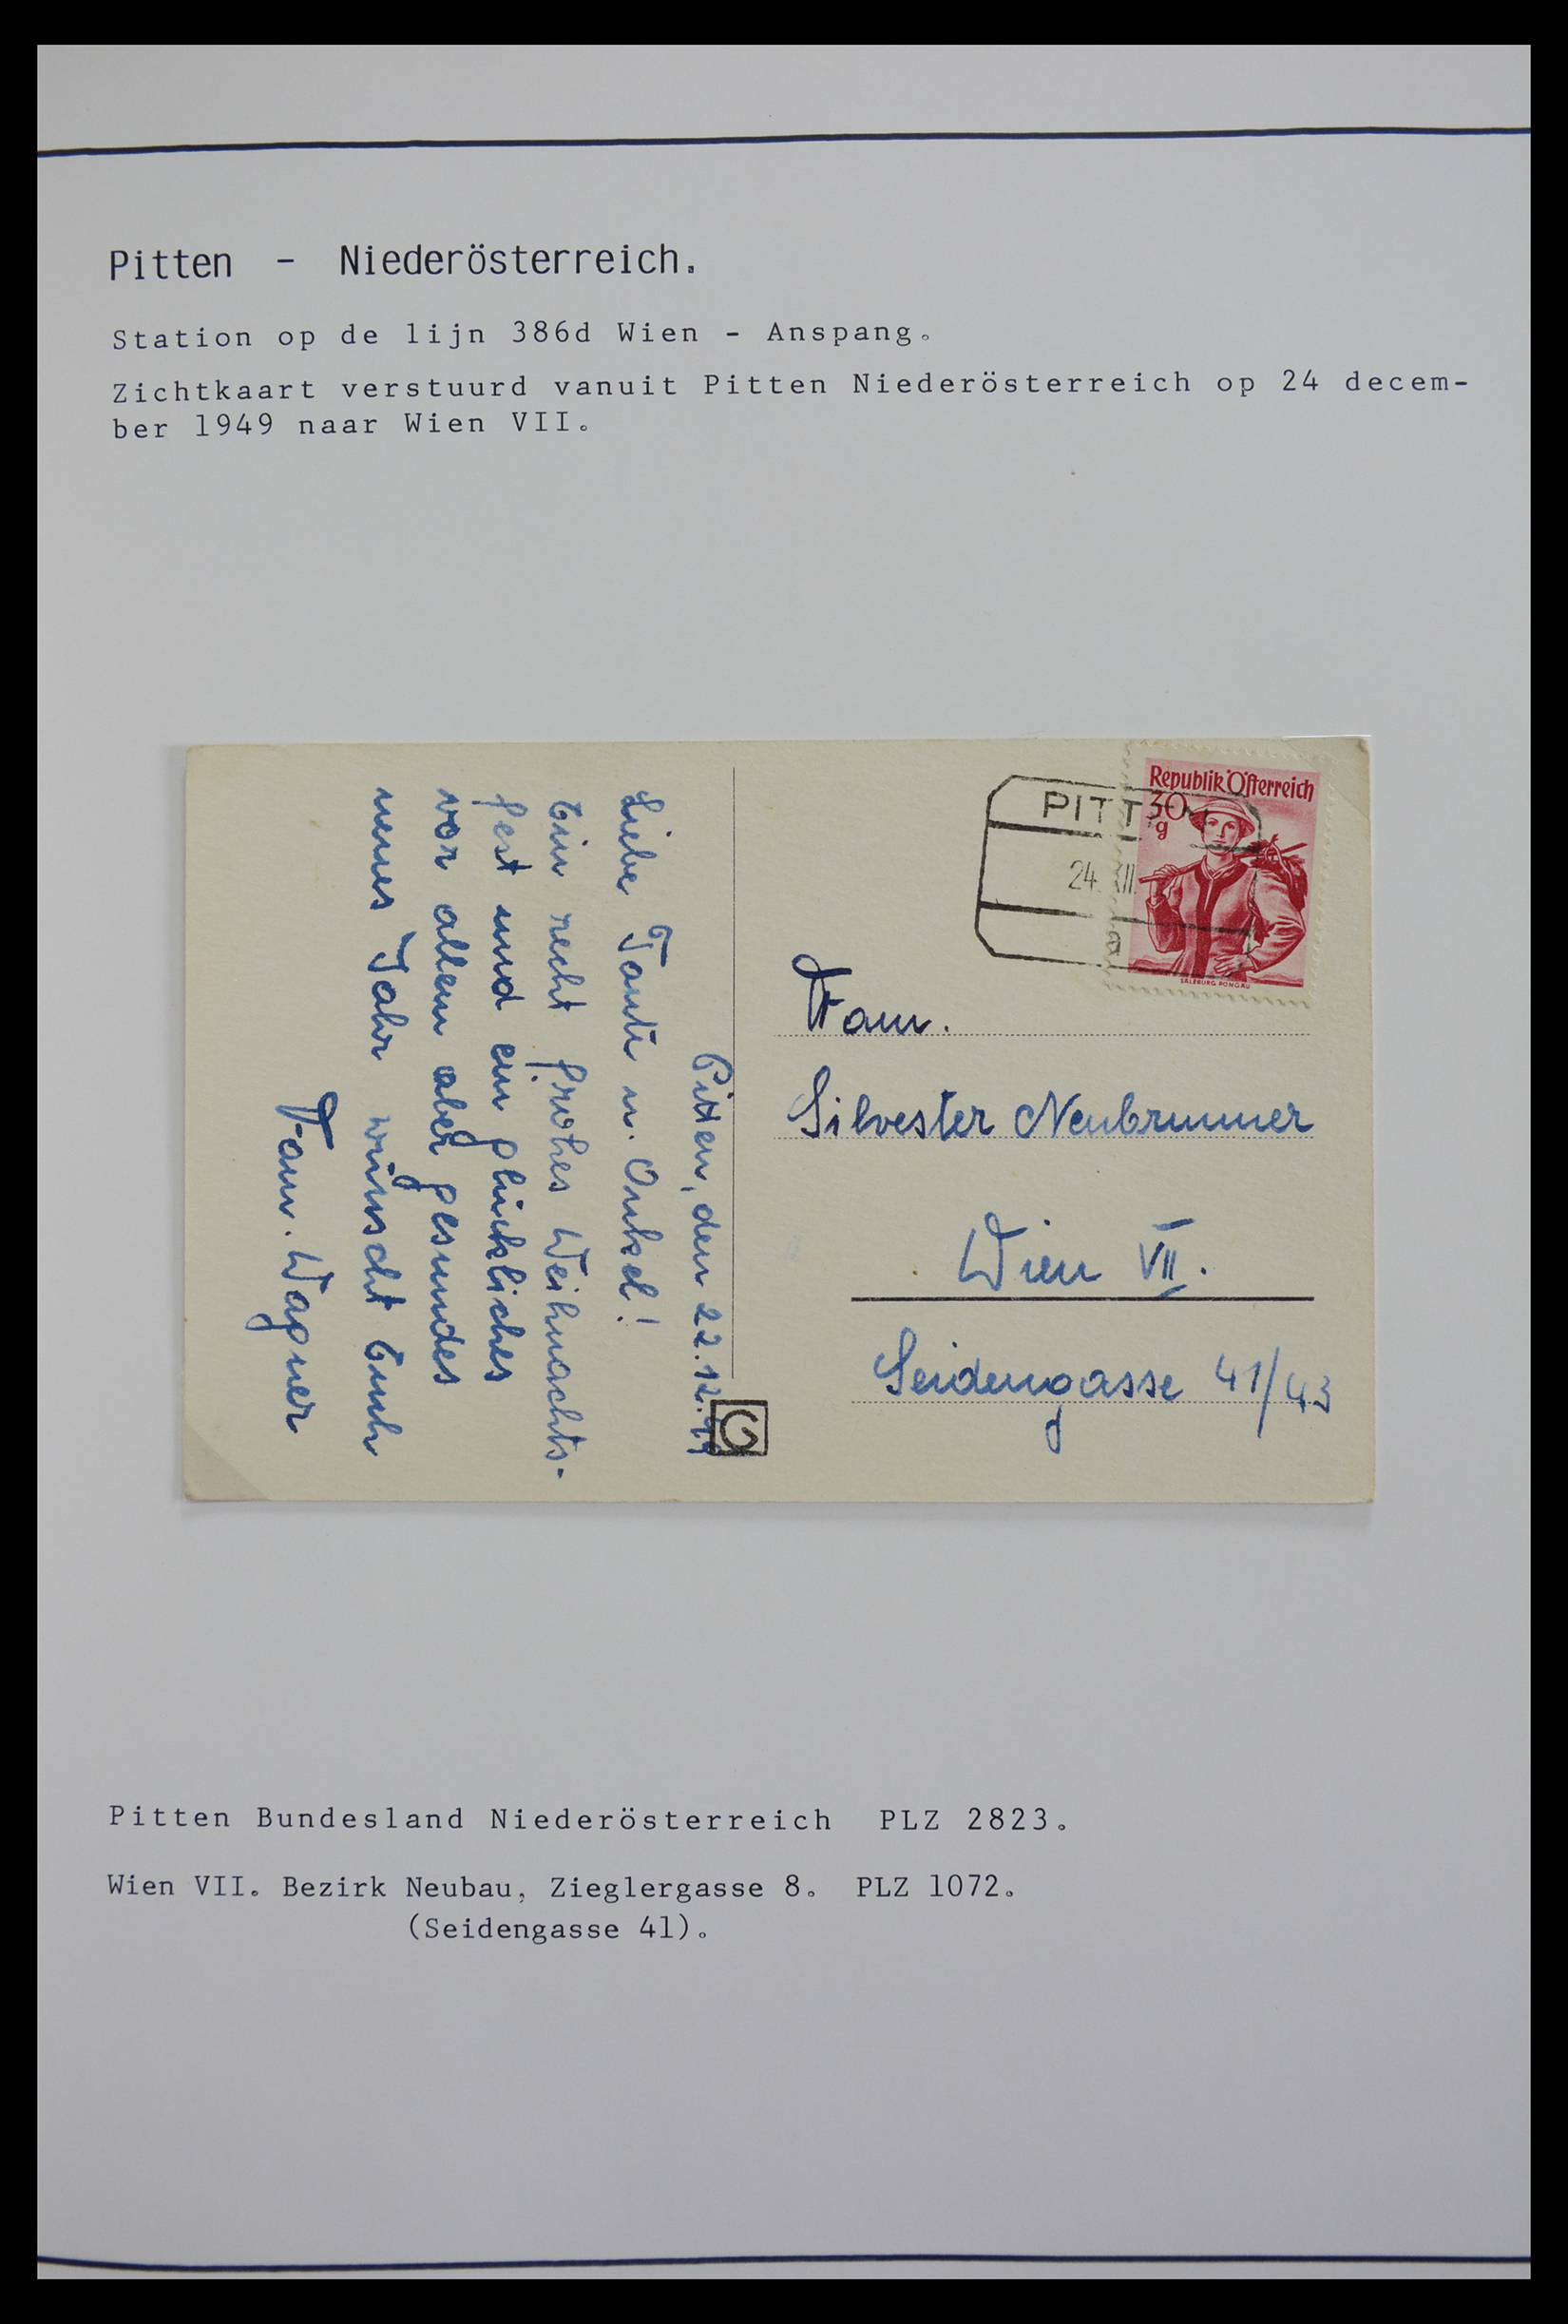 Pitten - Niederösterreich.
Station op de lijn 386d Wien - Anspang.
Zichtkaart verstuurd vanuit Pitten Niederösterreich op 24 decem-
ber 1949 naar Wien VII.
Republik Österreich
30
g
SALZBURG PONGAU
PITT
24. XII.
a
Fam.
Silvester Neubrunner
Wien VII.
Seidengasse 41/43
Pitten, den 22.12.49
G
Liebe Tante u. Onkel!
Ein recht frohes Weihnachts-
fest und ein glückliches
vor allem aber gesundes
neues Jahr wünscht Euch
Fam. Wagner
Pitten Bundesland Niederösterreich PLZ 2823.
Wien VII. Bezirk Neubau, Zieglergasse 8. PLZ 1072.
(Seidengasse 41).